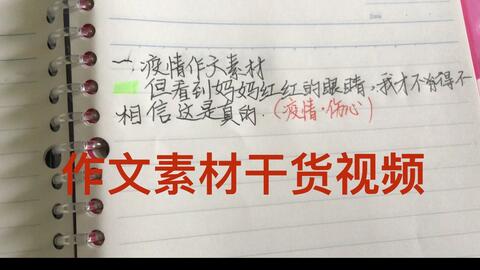 一、疫情作文素材
但看到妈妈红红的眼睛，我才不得不
相信这是真的.(疫情·伤心)
作文素材干货视频